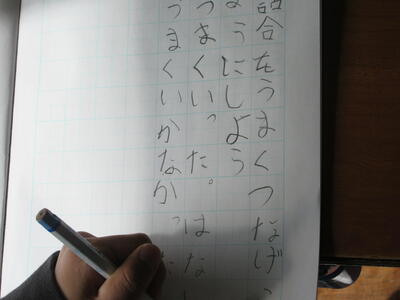 合をうまくつなげ
ようにしよう
うまくいった。はな
うまくいかなかった